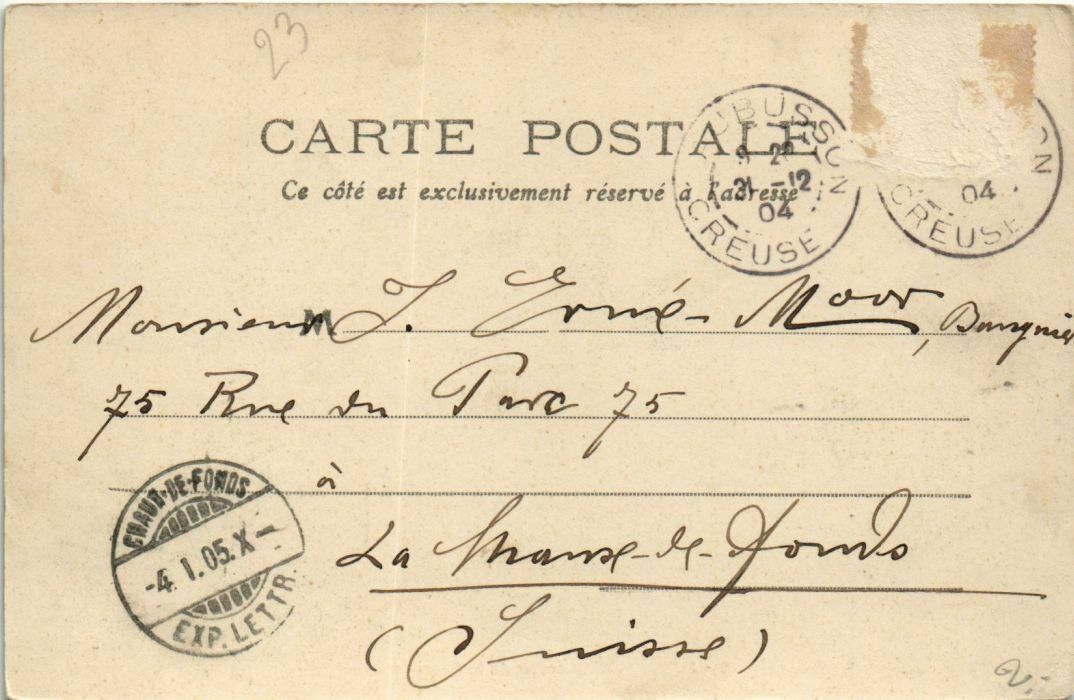 23
CARTE POSTALE
Ce côté est exclusivement réservé à l'adresse
AUBUSSON
21 -12
04
CREUSE
ON
04
CREUSE
Monsieur M J. Erné-Moor, Banquier
75 Rue du Parc 75
à
La Chaux-de-Fonds
(Suisse)
CHAUX-DE-FONDS
-4.I.05.X-
EXP. LETTR.
2.-